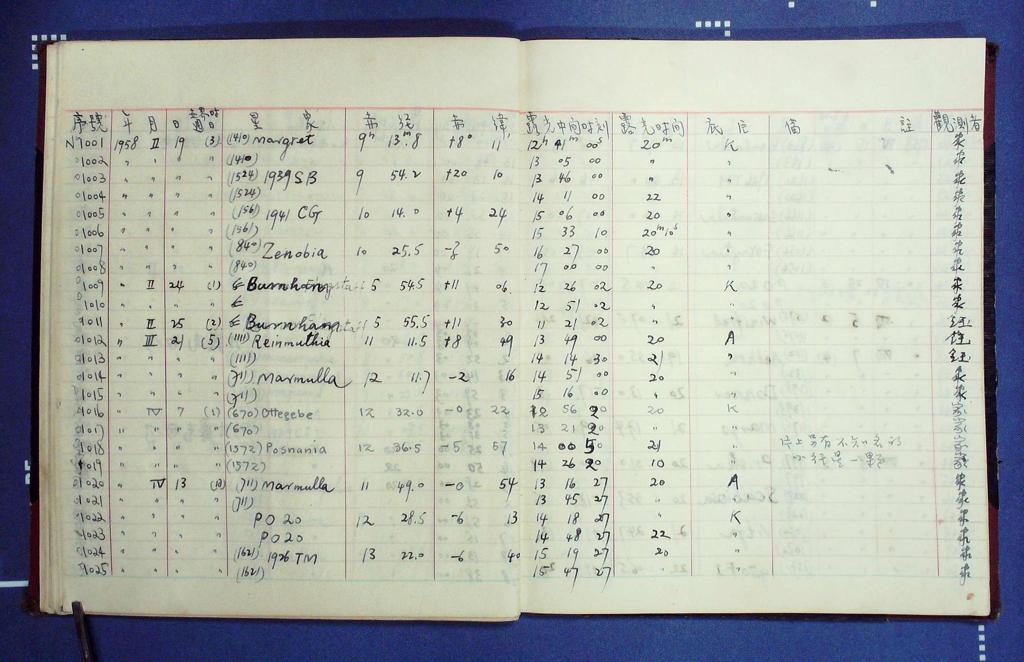 序號 年 月 日 世界時週日 星 象 赤 経 赤 緯 露光中间時刻 露光時间 底片 備 註 觀測者
N1001 1958 II 19 (3) (1410) margret 9h 13m.8 +8° 11' 12h 41m 00s 20m K
01002 " " " " (1410) 13 05 00 "
01003 " " " " (1524) 1939 SB 9 54.2 +20 10 13 46 00 " "
01004 " " " " (1524) 14 11 00 22 "
01005 " " " " (1561) 1941 CG 10 14.0 +4 24 15 06 00 20 "
01006 " " " " (1561) 15 33 10 20m10s "
01007 " " " " (840) Zenobia 10 25.5 -3 50 16 27 00 20 "
01008 " " " " (840) 17 00 00 " "
01009 " II 24 (1) Burnham 5 54.5 +11 06 12 26 02 20 K
01010 " " " " 12 51 02 " "
01011 " II 25 (2) Burnham 5 55.5 +11 30 11 21 02 " "
01012 " III 21 (5) (1111) Reinmuthia 11 11.5 +8 49 13 49 00 20 A
01013 " " " " (1111) 14 14 30 21 "
01014 " " " " (711) Marmulla 12 11.7 -2 16 14 51 00 20 "
01015 " " " " (711) 15 16 00 " "
01016 " IV 7 (1) (670) Ottegebe 12 32.0 -0 22 12 56 20 20 K
01017 " " " " (670) 13 21 20 " "
01018 " " " " (1572) Posnania 12 36.5 -5 57 14 00 50 21 " 片上另有不知名的
01019 " " " " (1572) 14 26 20 10 " 小行星一颗
01020 " IV 13 (711) Marmulla 11 49.0 -0 54 13 16 27 20 A
01021 " " " " (711) 13 45 27 " "
01022 " " " " PO 20 12 28.5 -6 13 14 18 27 " K
01023 " " " " PO 20 14 48 27 22 "
01024 " " " " (1621) 1926 TM 13 22.0 -6 40 15 19 27 20 "
01025 " " " " (1621) 15 47 27 " "